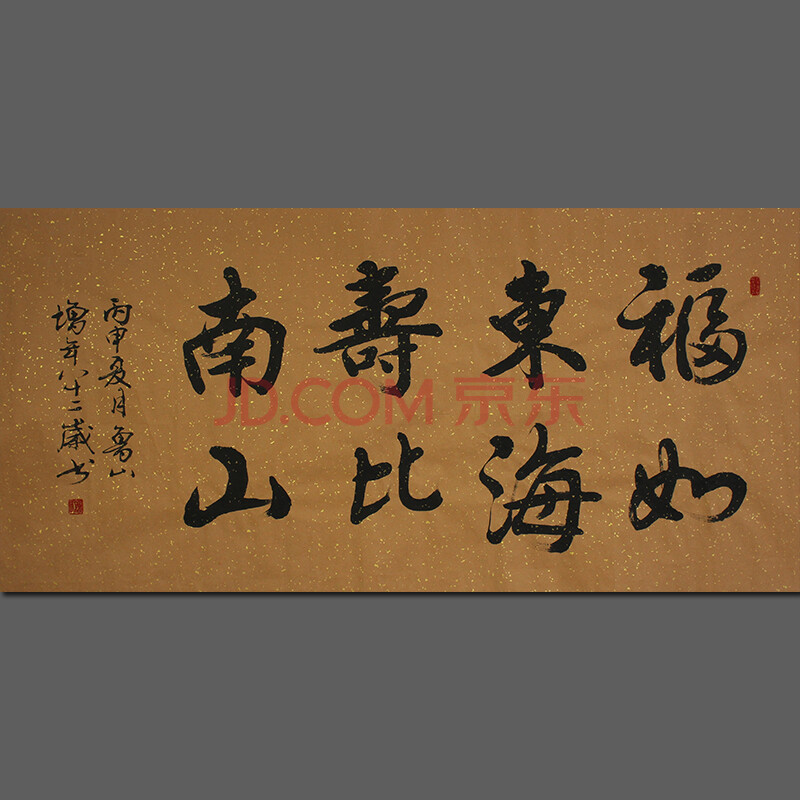 福如
東海
壽比
南山
丙申夏月魯山
增年八十二歲书
JD.COM 京东